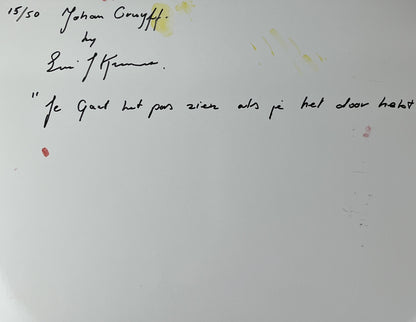 15/50 Johan Cruyff.
by
"Je Gaat het pas zien als je het door hebt